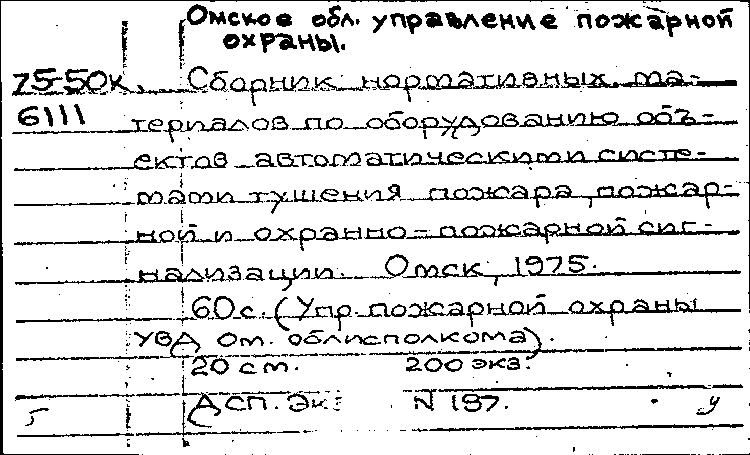 Омское обл. управление пожарной
охраны.
75-50к. Сборник нормативных ма-
6111 териалов по оборудованию объ-
ектов автоматическими систе-
мами тушения пожара, пожар-
ной и охранно-пожарной сиг-
нализации. Омск, 1975.
60 с. (Упр. пожарной охраны
УВД Ом. облисполкома).
20 см. 200 экз.
ДСП. Экз N 197.
Б у